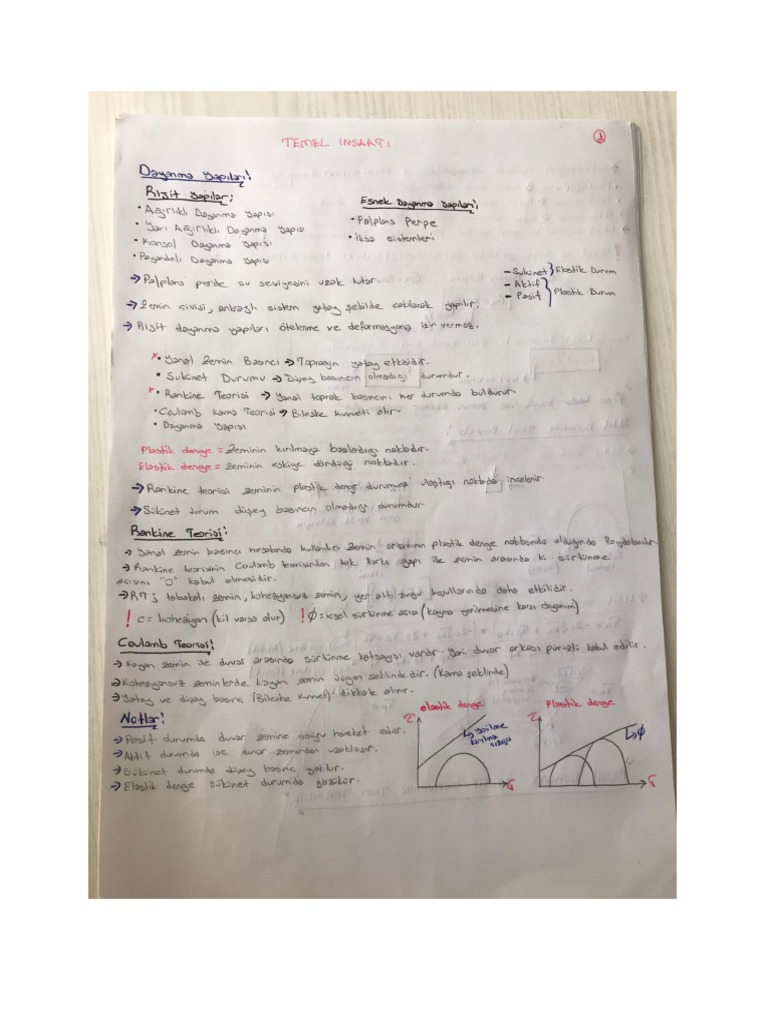 1
TEMEL İNŞAATI
Dayanma Yapıları!
Rijit yapılar:
• Ağırlıklı Dayanma Yapısı
• Yarı Ağırlıklı Dayanma Yapısı
• Konsol Dayanma Yapısı
• Payandalı Dayanma Yapısı
Esnek Dayanma Yapıları;
• Palplanş Perpe
• İksa sistemleri
→ Palplanş perde su seviyesini uzak tutar.
→ Zemin çivisi, ankrajlı sistem yatay şekilde çakılarak yapılır.
→ Rijit dayanma yapıları ötelenme ve deformasyona izin vermez.
- Sukünet } Elastik Durum
- Aktif
- Pasif } Plastik Durum
* • Yanal Zemin Basıncı → Toprağın yatay etkisidir.
• Sukünet Durumu → Düşey basıncın olmadığı durumdur.
* • Rankine Teorisi → Yanal toprak basıncını her durumda buldurur.
• Coulomb Kama Teorisi → Bileşke kuvveti alır.
• Dayanma Yapısı
Plastik denge = Zeminin kırılmaya başladığı noktadır.
Elastik denge = Zeminin eskiye döndüğü noktadır.
→ Rankine teorisi zeminin plastik denge durumuna ulaştığı noktada incelenir
→ Sükunet durum düşey basıncın olmadığı durumdur
Rankine Teorisi!
→ Yanal zemin basıncı hesabında kullanılır. Zemin ortamının plastik denge noktasında olduğunda faydalanılır
→ Rankine teorisinin Coulomb teorisinden tek farkı yapı ile zemin arasında ki sürtünme
açısını "0" kabul etmesidir.
→ RT; tabakalı zemin, kohezyonsuz zemin, yer altı suyu koşullarında daha etkilidir.
! c = kohezyon (kil varsa alınır) ! Ø = içsel sürtünme açısı (kayma gerilmelerine karşı dayanım)
Coulamb Teorisi!
→ Kayan zemin ile duvar arasında sürtünme katsayısı vardır. Yani duvar arkası pürüzlü kabul edilir.
→ Kohezyonsuz zeminlerde kayan zemin üçgen şeklindedir. (Kama şeklinde)
→ Yatay ve düşey basınç (Bileşke kuvvet) dikkate alınır.
Notlar!
→ Pasif durumda duvar zemine doğru hareket eder.
→ Aktif durumda ise duvar zeminden uzaklaşır.
→ Sükünet durumda düşey basınç yoktur.
→ Elastik denge sükünet durumda gözükür.
elastik denge
τ
→ yenilme
kırılma
σ
Plastik denge
τ
→ Ø
σ